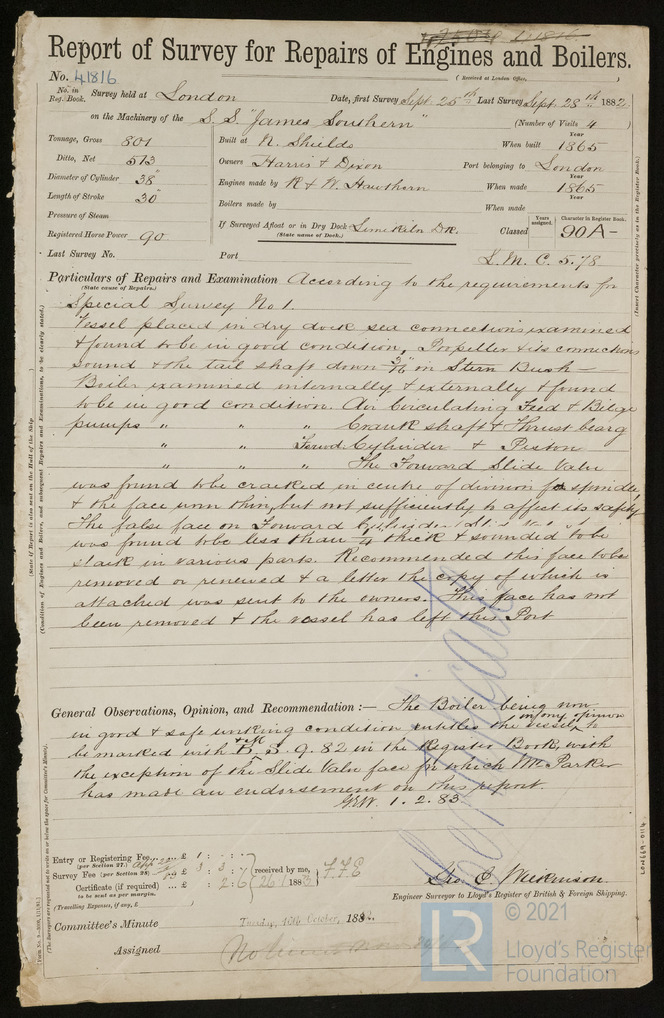 Report of Survey for Repairs of Engines and Boilers.
No. 41816
(Received at London Office, )
No. in Reg. Book. Survey held at London Date, first Survey Sept. 25th Last Survey Sept. 28th 1882
on the Machinery of the S.S. "James Southern" (Number of Visits 4
Tonnage, Gross 801 Built at N. Shields When built Year 1865
Ditto, Net 513 Owners Harris & Dixon Port belonging to London
Diameter of Cylinder 38" Engines made by R & W. Hawthorn When made Year 1865
Length of Stroke 30" Boilers made by When made
Pressure of Steam If Surveyed Afloat or in Dry Dock Limekiln Dk. Classed Years assigned. Character in Register Book. 90A-
(State name of Dock.)
Registered Horse Power 90
Last Survey No. Port L.M.C. 5.78
Particulars of Repairs and Examination According to the requirements for
(State cause of Repairs.)
Special Survey No 1.
Vessel placed in dry dock sea connections examined
& found to be in good condition, Propeller & its connections
sound & the tail shaft down 3/16" on Stern Bush—
Boiler examined internally & externally & found
to be in good condition. Air Circulating Feed & Bilge
pumps " " " Crank shaft & Thrust bearg
" " " Forwd Cylinder & Piston
" " " The Forward Slide Valve
was found to be cracked in centre of division for spindle
& the face worn thin, but not sufficiently to affect its safety
The false face on Forward Cylinder
was found to be less than 1/4" thick & sounded to be
slack in various parts. Recommended this face to be
removed or renewed & a letter the copy of which is
attached was sent to the owners. This face has not
been removed & the vessel has left this Port
General Observations, Opinion, and Recommendation :— The Boiler being now
in good & safe working condition entitles the vessel in my opinion to
be marked with B.S. 9.82 in the Register Book, with
the exception of the Slide Valve face for which Mr. Parker
has made an endorsement on this report.
1.2.83
Entry or Registering Fee £ 1 : :
(per Section 27.)
Survey Fee (per Section 28) £ 3 : 3 : received by me,
Certificate (if required) £ : 2 : 6
to be sent as per margin.
(Travelling Expenses, if any, £ )
Geo. C. Wilkinson
Engineer Surveyor to Lloyd's Register of British & Foreign Shipping.
Committee's Minute Tuesday, 10th October, 1882.
Assigned
(State if Report is also sent on the Hull of the Ship
(Condition of Engines and Boilers, and subsequent Repairs and Examinations, to be clearly stated.)
(The Surveyors are requested not to write on or below the space for Committee's Minute).
(Insert Character precisely as in the Register Book.)
LON669-0114
© 2021
LR
Lloyd's Register
Foundation